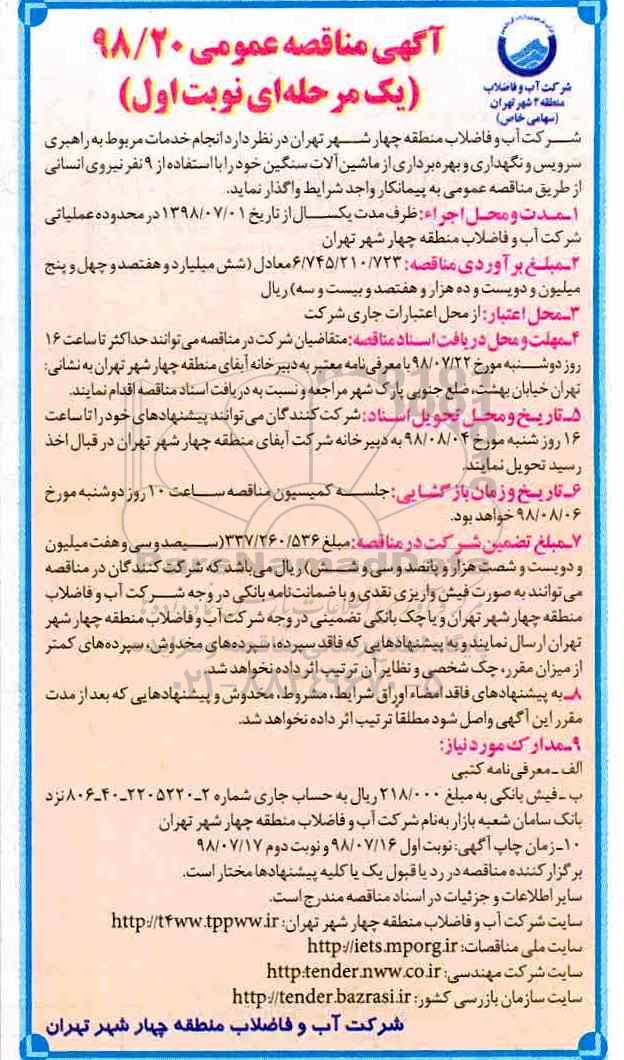 آگهی مناقصه عمومی ۹۸/۲۰
(یک مرحله‌ای نوبت اول)
شرکت آب و فاضلاب
منطقه ۴ شهر تهران
(سهامی خاص)
شرکت آب و فاضلاب منطقه چهار شهر تهران در نظر دارد انجام خدمات مربوط به راهبری
سرویس و نگهداری و بهره‌برداری از ماشین‌آلات سنگین خود را با استفاده از ۹ نفر نیروی انسانی
از طریق مناقصه عمومی به پیمانکار واجد شرایط واگذار نماید.
۱ـ مدت و محل اجراء: ظرف مدت یکسال از تاریخ ۱۳۹۸/۰۷/۰۱ در محدوده عملیاتی
شرکت آب و فاضلاب منطقه چهار شهر تهران
۲ـ مبلغ برآوردی مناقصه: ۶/۷۴۵/۲۱۰/۷۲۳ معادل (شش میلیارد و هفتصد و چهل و پنج
میلیون و دویست و ده هزار و هفتصد و بیست و سه) ریال
۳ـ محل اعتبار: از محل اعتبارات جاری شرکت
۴ـ مهلت و محل دریافت اسناد مناقصه: متقاضیان شرکت در مناقصه می‌توانند حداکثر تا ساعت ۱۶
روز دوشنبه مورخ ۹۸/۰۷/۲۲ با معرفی‌نامه معتبر به دبیرخانه آبفای منطقه چهار شهر تهران به نشانی:
تهران خیابان بهشت ضلع جنوبی پارک شهر مراجعه و نسبت به دریافت اسناد مناقصه اقدام نمایند.
۵ـ تاریخ و محل تحویل اسناد: شرکت‌کنندگان می‌توانند پیشنهادهای خود را تا ساعت
۱۶ روز شنبه مورخ ۹۸/۰۸/۰۴ به دبیرخانه شرکت آبفای منطقه چهار شهر تهران در قبال اخذ
رسید تحویل نمایند.
۶ـ تاریخ و زمان بازگشایی: جلسه کمیسیون مناقصه ساعت ۱۰ روز دوشنبه مورخ
۹۸/۰۸/۰۶ خواهد بود.
۷ـ مبلغ تضمین شرکت در مناقصه: مبلغ ۳۳۷/۲۶۰/۵۳۶ (سیصد و سی و هفت میلیون
و دویست و شصت هزار و پانصد و سی و شش) ریال می‌باشد که شرکت‌کنندگان در مناقصه
می‌توانند به صورت فیش واریزی نقدی و یا ضمانت‌نامه بانکی در وجه شرکت آب و فاضلاب
منطقه چهار شهر تهران و یا چک بانکی تضمینی در وجه شرکت آب و فاضلاب منطقه چهار شهر
تهران ارسال نمایند و به پیشنهادهایی که فاقد سپرده، سپرده‌های مخدوش، سپرده‌های کمتر
از میزان مقرر، چک شخصی و نظایر آن ترتیب اثر داده نخواهد شد.
۸ـ به پیشنهادهای فاقد امضاء اوراق شرایط، مشروط، مخدوش و پیشنهادهایی که بعد از مدت
مقرر این آگهی واصل شود مطلقاً ترتیب اثر داده نخواهد شد.
۹ـ مدارک مورد نیاز:
الف ـ معرفی‌نامه کتبی
ب ـ فیش بانکی به مبلغ ۲۱۸/۰۰۰ ریال به حساب جاری شماره ۲ـ۲۲۰۵۲۲۰ـ۴۰ـ۸۰۶ نزد
بانک سامان شعبه بازار به‌نام شرکت آب و فاضلاب منطقه چهار شهر تهران
۱۰ـ زمان چاپ آگهی: نوبت اول ۹۸/۰۷/۱۶ و نوبت دوم ۹۸/۰۷/۱۷
برگزارکننده مناقصه در رد یا قبول یک یا کلیه پیشنهادها مختار است.
سایر اطلاعات و جزئیات در اسناد مناقصه مندرج است.
سایت شرکت آب و فاضلاب منطقه چهار شهر تهران: http://t4ww.tppww.ir
سایت ملی مناقصات: http://iets.mporg.ir
سایت شرکت مهندسی: http:tender.nww.co.ir
سایت سازمان بازرسی کشور: http://tender.bazrasi.ir
شرکت آب و فاضلاب منطقه چهار شهر تهران